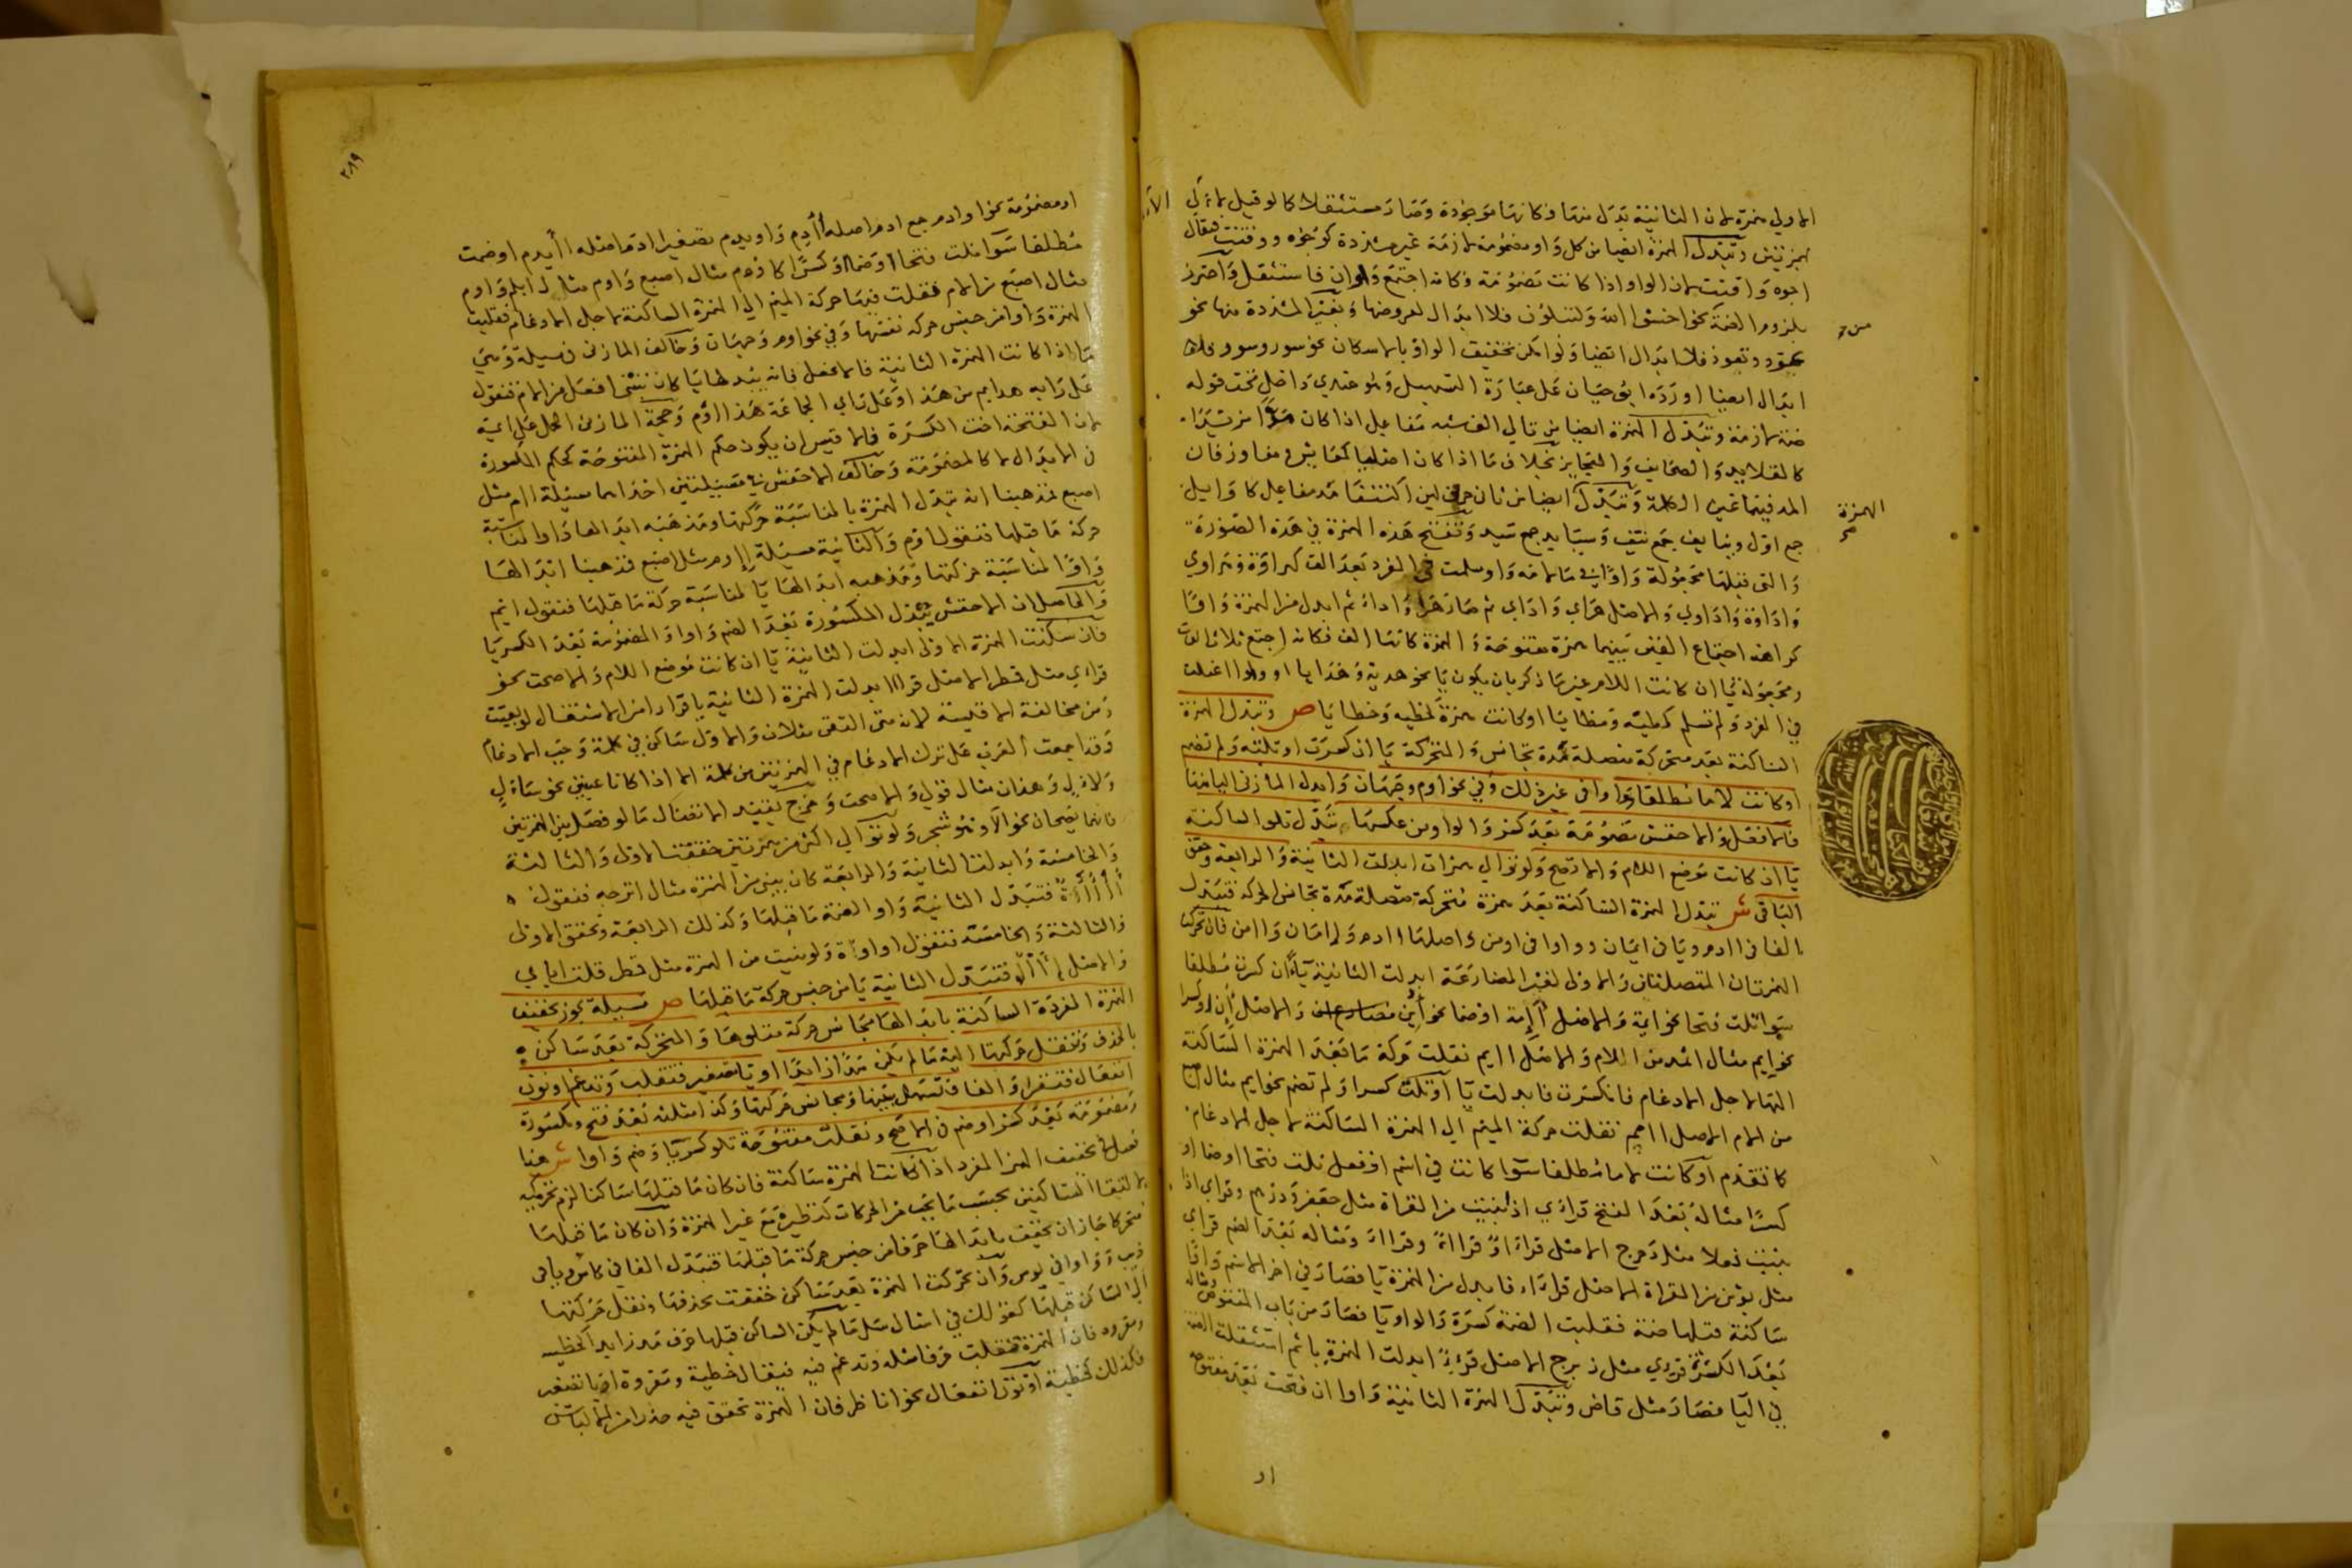 الاولى همزة لان الثانية تبدل منها فكانها موجودة وصار مستثقلا كما لو قيل
همزتين وتبدل الهمزة ايضا من كل واو مضمومة لازمة غير مشددة كوجوه ووقتت فيقال
اجوه واقتت لان الواو اذا كانت مضمومة فكانه اجتمع واوان فاستثقل واحترز
بلزوم الضمة نحو اخشوا الله ولتبلون فلا ابدال لعروضها وبغير المشددة منها نحو
تعود وتعوذ فلا ابدال ايضا ولو امكن تخفيف الواو بالاسكان نحو سور وسور فلا
ابدال ايضا اورده ابو حيان على عبارة التسهيل وهو عندي داخل تحت قوله
ضمة لازمة وتبدل الهمزة ايضا من تالي الف شبه مفاعل اذا كان مدا مزيدا
كالقلايد والصحايف والعجايز بخلاف ما اذا كان اصليا كمعايش ومفاوز فان
المد فيهما عين الكلمة وتبدل ايضا من ثان حرفي لين اكتنفا مد مفاعل كاوايل
جمع اول ونيايف جمع نيف وسيايد جمع سيد وتفتح هذه الهمزة في هذه الصورة
والتي قبلها مجعولة واوا في ما لامه واو سلمت في المفرد بعد الف كهراوة وهراوي
واداوة واداوي والاصل هراي واداي ثم صار هراا واداا ثم ابدل من الهمزة واوا
كراهة اجتماع الفين بينهما همزة مفتوحة والهمزة كانها الف فكانه اجتمع ثلاث الفات
ومجعولة يا ان كانت اللام غير ما ذكر بان يكون يا نحو هدية وهدايا او واوا اعتلت
في المفرد ولم تسلم كمطية ومطايا او كانت همزة كخطية وخطايا ص وتبدل الهمزة
الساكنة بعد متحركة متصلة مدة تجانس والمتحركة يا ان كسرت او تلته ولم تضم
او كانت لاما مطلقا وواوا في غير ذلك وفي نحو اوم وجهان وابدل المازني اليا منها
فا لافعل والاخفش مضمومة بعد كسر والواو من عكسها وتبدل تلو الساكنة
يا ان كانت موضع اللام والا تصح ولو توالى همزات ابدلت الثانية والرابعة وحقق
الباقي ش تبدل الهمزة الساكنة بعد همزة متحركة متصلة مدة تجانس الحركة فتبدل
الفا في اادم ويا في ايمان وواوا في اومن واصلها اادم واامان واامن فان تحركت
الهمزتان المتصلتان والاولى لغير المضارعة ابدلت الثانية ياء ان كسرت مطلقا
سواء تلت فتحا نحو ايمة والاصل أإمة او ضما نحو أين مضارع ان والاصل أإن او كسرا
نحو ايم مثال اثمد من اللام والاصل اايم نقلت حركة ما بعد الهمزة الساكنة
اليها لاجل الادغام فانكسرت فابدلت يا او تلت كسرا ولم تضم نحو ايم مثال اصبع
من الام الاصل اامم نقلت حركة الميم الى الهمزة الساكنة لاجل الادغام
كما تقدم او كانت لاما مطلقا سوا كانت في اسم او فعل تلت فتحا او ضما او
كسرا مثاله بعد الفتح قراءي اذا بنيت من القراة مثل جعفر ودرهم وقراي اذا
بنيت فعلا مثل دحرج الاصل
مثل برثن من القراة الاصل قراءء فابدل من الهمزة يا فصار في اخر الاسم واوا
ساكنة قبلها ضمة فقلبت الضمة كسرة والواو يا فصار من باب المنقوص ومثاله
بعد الكسرة قرءي مثل زبرج الاصل قرءء ابدلت الهمزة يا ثم استثقلت الضمة
في اليا فصار مثل قاض وتبدل الهمزة الثانية واوا ان فتحت بعد مفتوحة
او
من
الهمزة
صح
٢٨٩
او مضمومة نحو اوادم جمع ادم اصله أأدم واويدم تصغير ادم اصله اأيدم او ضمت
مطلقا سوا تلت فتحا او ضما او كسرا كاوم مثال اصبع واوم مثال ابلم واوم
مثال اصبع من الام فنقلت فيها حركة الميم الى الهمزة الساكنة لاجل الادغام فقلبت
الهمزة واوا من جنس حركة نفسها وفي نحو اوم وجهان وخالف المازني في مسيلة وهي
ما اذا كانت الهمزة الثانية فا لافعل فانه يبدلها يا كان تبني افعل من الام فتقول
على رايه هذا ايم من هذا وعلى راي الجماعة هذا اوم وحجة المازني الحمل على ايمة
لان الفتحة اخت الكسرة فالاقيس ان يكون حكم الهمزة المفتوحة كحكم المكسورة
في الابدال لا كالمضمومة وخالف الاخفش في مسيلتين احداهما مسيلة اام مثل
اصبع فمذهبنا انه تبدل الهمزة بالمناسبة حركتها ومذهبه ابدالها واوا لمناسبة
حركة ما قبلها فتقول اوم والثانية مسيلة إأم مثل اصبع فمذهبنا ابدالها
واوا لمناسبة حركتها ومذهبه ابدالها يا لمناسبة حركة ما قبلها فتقول ايم
والحاصل ان الاخفش يبدل المكسورة بعد الضم واوا والمضمومة بعد الكسر يا
فان سكنت الهمزة الاولى ابدلت الثانية يا ان كانت موضع اللام والا صحت نحو
قراءي مثل قمطر الاصل قرااا بدلت الهمزة الثانية يا فرارا من الاستثقال لو بقيت
ومن مخالفة الاقيسة لانه متى التقى مثلان والاول ساكن في كلمة وجب الادغام
وقد اجمعت العرب على ترك الادغام في الهمزتين من كلمة الا اذا كانا عينين نحو سال
ولاال وهذان مثال قولي والا صحت وخرج بقيد الاتصال ما لو فصل بين الهمزتين
فانهما يصحان نحو الاء وهو شجر ولو توالى اكثر من همزتين حققت الاولى والثالثة
والخامسة وابدلت الثانية والرابعة كان يبني من الهمزة مثال اترجة فتقول
أأأأأة فتبدل الثانية واوا لضمة ما قبلها وكذلك الرابعة وتحقق الاولى
والثالثة والخامسة فتقول اواوأة ولو بنيت من الهمزة مثل قمطر قلت ايايي
والاصل فتبدل الثانية يا من جنس حركة ما قبلها ص مسيلة يجوز تخفيف
الهمزة المفردة الساكنة بابدالها مجانس حركة متلوها والمتحركة بعد ساكن
بالحذف وتنقل حركتها اليه ما لم يكن مدا زايدا او يا تصغير فتقلب وتدغم او نون
انفعال فتقر او الفا فتسهل بينها ومجانس حركتها وكذا مثلثة بعد فتح ومكسورة
ومضمومة بعد كسر او ضم في الاصح وتقلب مفتوحة تلو كسر يا وضم واوا ش هنا
فصل في تخفيف الهمز المفرد اذا كانت الهمزة ساكنة فان كان ما قبلها ساكنا لزم تحركه
لالتقا الساكنين بحسب ما يجب من الحركات كنظيرة مع غير الهمزة وان كان ما قبلها
متحركا جاز ان تخفف بابدالها حرفا من جنس حركة ما قبلها فتبدل الفا في كاس ويا في
ذيب وواوا في بوس وان تحركت الهمزة بعد ساكن خففت بحذفها ونقل حركتها
الى الساكن قبلها كقولك في اسال سل ما لم يكن الساكن قبلها حرف مد زايد كخطيه
ومقروه فان الهمزة تقلب حرفا مثله وتدغم فيه فيقال خطية ومقروة او يا تصغير
فكذلك كخطية او نون انفعال نحو اناطر فان الهمزة تحقق فيه حذرا من الالباس